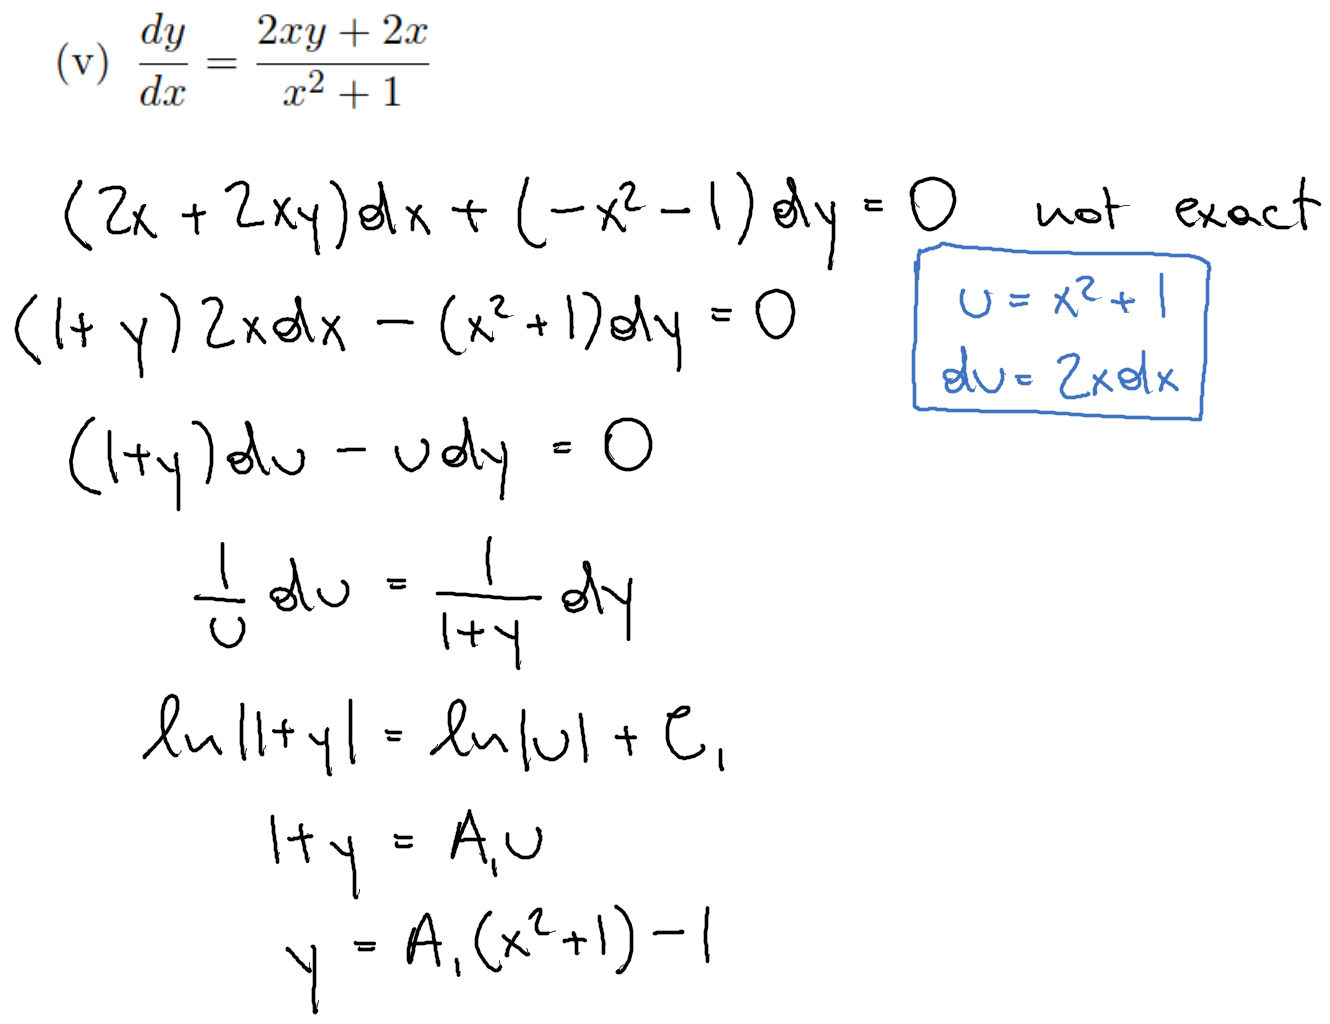 (v) dy/dx = (2xy + 2x)/(x² + 1)
(2x + 2xy)dx + (-x² - 1)dy = 0 not exact
u = x² + 1
(1 + y)2xdx - (x² + 1)dy = 0
du = 2xdx
(1+y)du - udy = 0
1/u du = 1/(1+y) dy
ln|1+y| = ln|u| + C₁
1+y = A₁u
y = A₁(x²+1) - 1